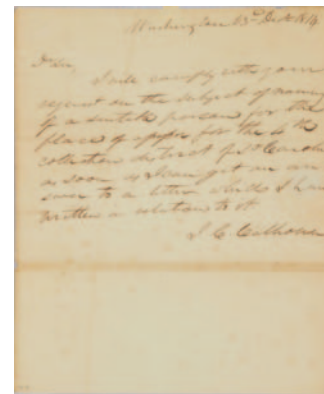 Washington 13th Decr 1814
Dr Sir,
I will comply with your
request on the subject of naming
of a suitable person for the
place of for the 4th
collection district of So Carolina
as soon as I can get an an
swer to a letter which I have
written in relation to it
J. C. Calhoun